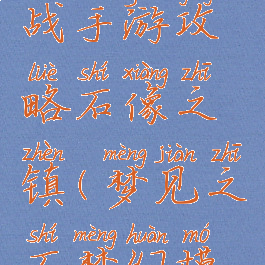 战手游攻
lüè shí xiàng zhī
略石像之
zhèn mèng jiàn zhī
镇(梦见之
shí mèng huàn mó